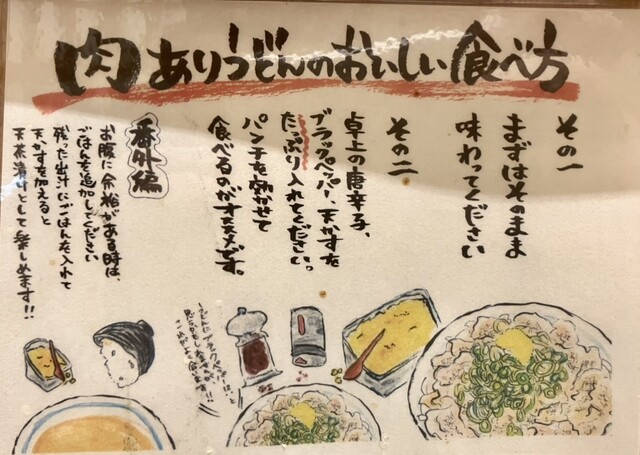 肉ありうどんのおいしい食べ方
その一
まずはそのまま
味わってください
その二
卓上の唐辛子、
ブラックペッパー、天かすを
たっぷり入れてください。
パンチを効かせて
食べるのがオススメです。
番外編
お腹に余裕がある時は、
ごはんを追加してください
残った出汁にごはんを入れて
天かすを加えると
天茶漬けとして楽しめます!!